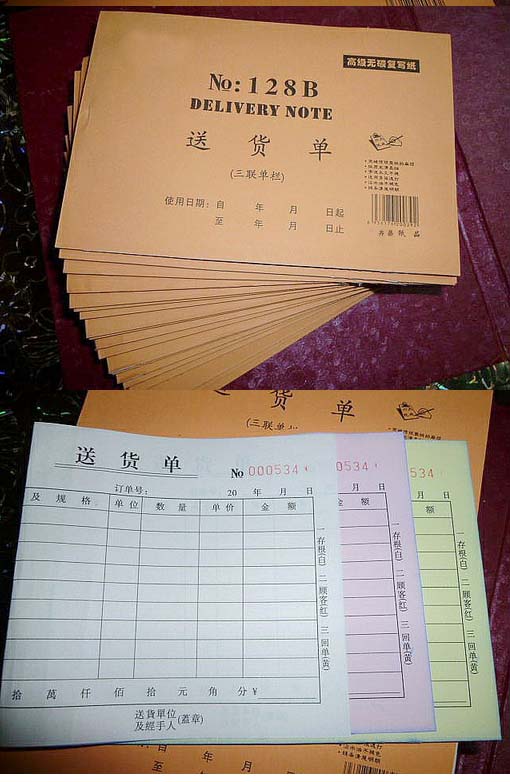 高级无碳复写纸
No: 128B
DELIVERY NOTE
送 货 单
(三联单栏)
使用日期: 自 年 月 日起
至 年 月 日止
送 货 单
No 000534
订单号: 20 年 月 日
及 规 格 单 位 数 量 单 价 金 额
一存根(白) 二顾客(红) 三回单(黄)
拾 萬 仟 佰 拾 元 角 分 ¥
送貨單位
及經手人 (蓋章)
534
额
一存根(白) 二顾客(红) 三回单(黄)
534
额
一存根(白) 二顾客(红) 三回单(黄)